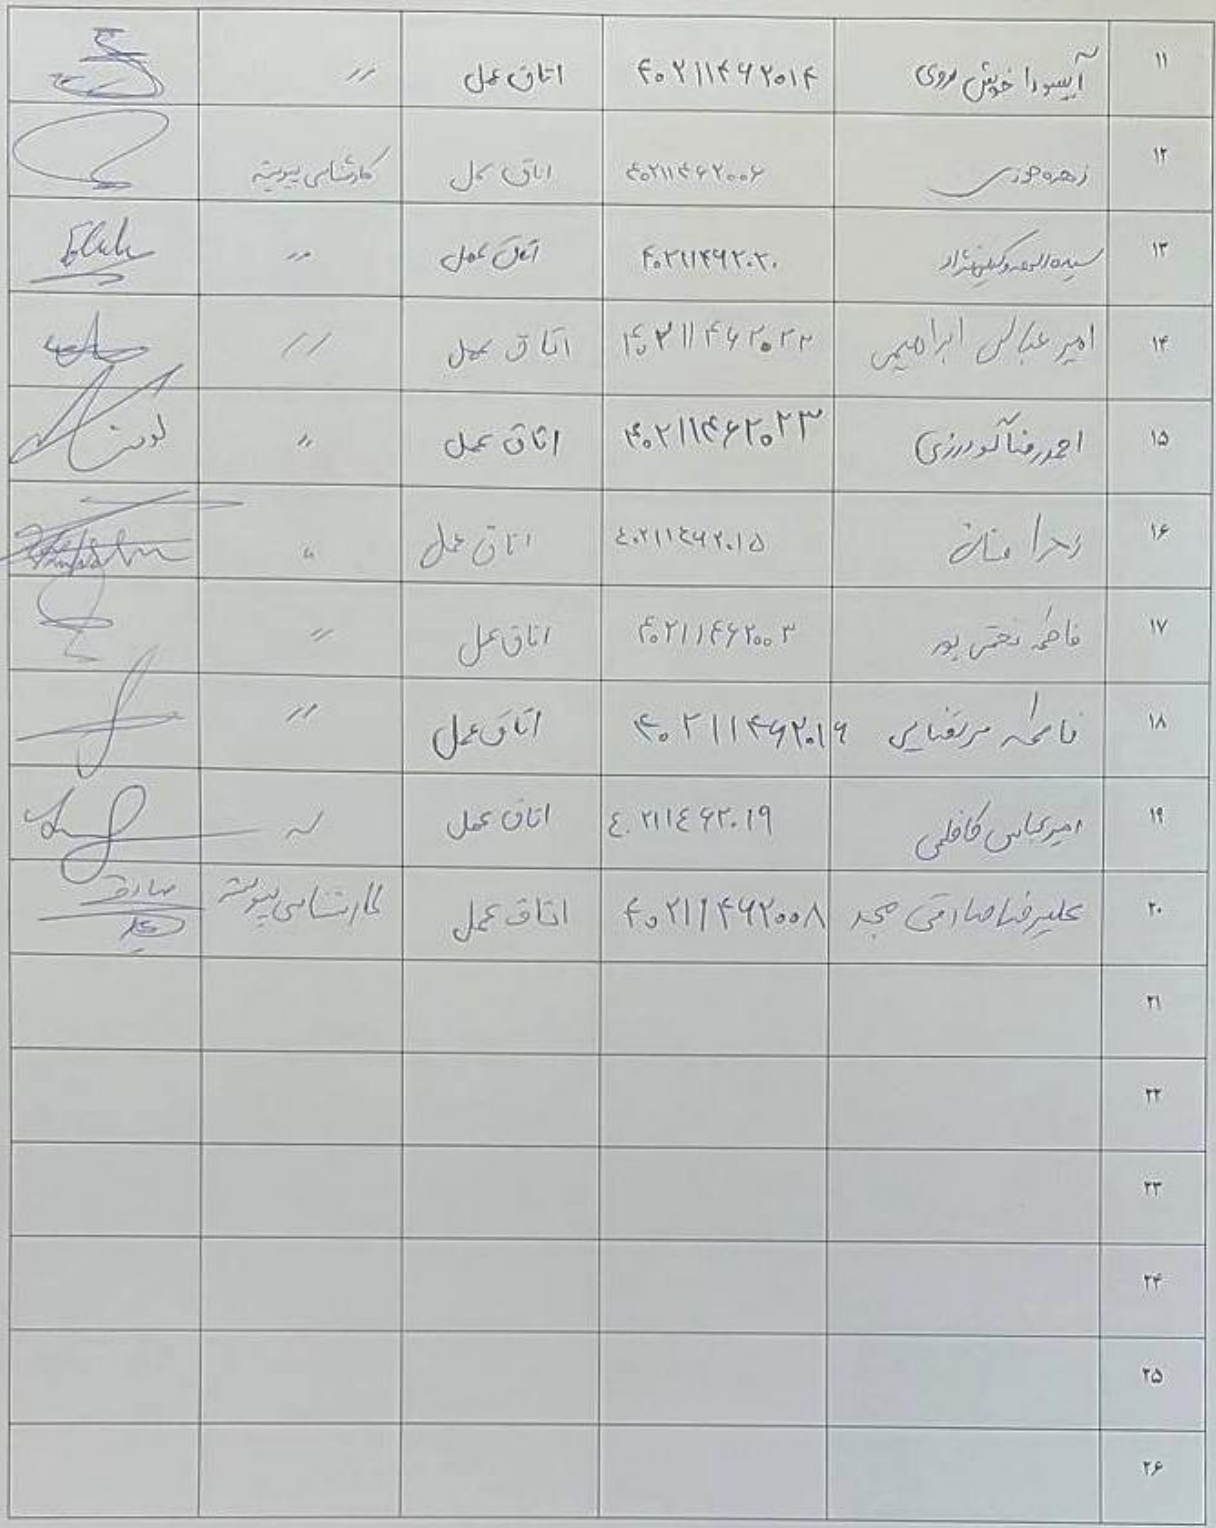 ۱۱ آیسودا خوش روی ۴۰۲۱۱۴۶۲۰۱۴ اتاق عمل //
۱۲ زهره حوزی ۴۰۲۱۱۴۶۲۰۰۶ اتاق عمل کارشناسی پیوسته
۱۳ سیده الهه ۴۰۲۱۱۴۶۲۰۲۰ اتاق عمل //
۱۴ امیر عباس ابراهیمی ۴۰۲۱۱۴۶۲۰۲۲ اتاق عمل //
۱۵ احمدرضا گودرزی ۴۰۲۱۱۴۶۲۰۲۳ اتاق عمل //
۱۶ زهرا ۴۰۲۱۱۴۶۲۰۱۵ اتاق عمل //
۱۷ فاطمه نعمتی پور ۴۰۲۱۱۴۶۲۰۰۳ اتاق عمل //
۱۸ فاطمه مرتضایی ۴۰۲۱۱۴۶۲۰۱۶ اتاق عمل //
۱۹ امیرعباس کافلی ۴۰۲۱۱۴۶۲۰۱۹ اتاق عمل
۲۰ علیرضا صادقی مجد ۴۰۲۱۱۴۶۲۰۰۸ اتاق عمل کارشناسی پیوسته صادقی
۲۱
۲۲
۲۳
۲۴
۲۵
۲۶